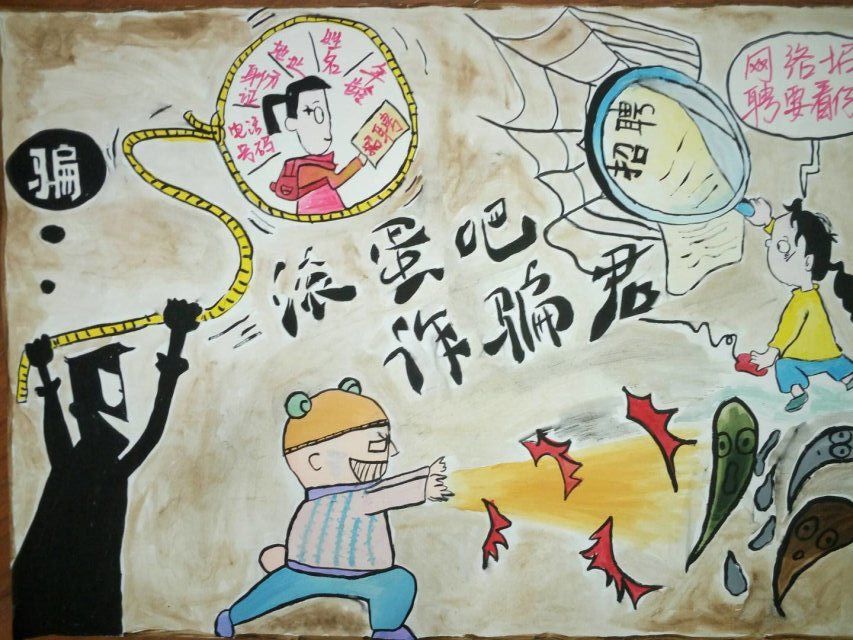 骗
电话
号码
身份
证
地址
姓名
年龄
招聘
招聘
网络招
聘要看仔
滚蛋吧
诈骗君